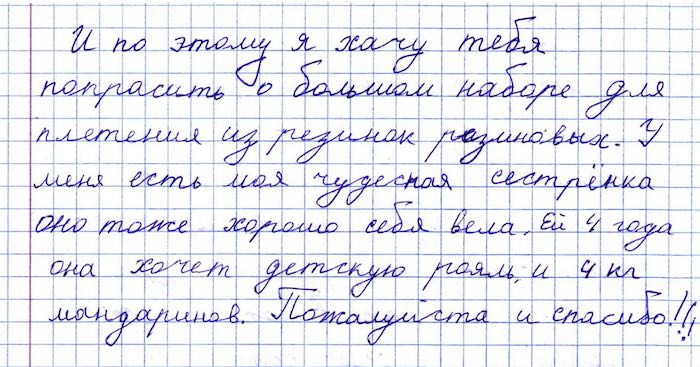 И по этому я хачу тебя
попрасить о большом наборе для
плетения из резинок резиновых. У
меня есть моя чудесная сестрёнка
оно тоже хорошо себя вела. Ей 4 года
она хочет детскую рояль, и 4 кг
мандаринов. Пожалуйста и спасибо!!!